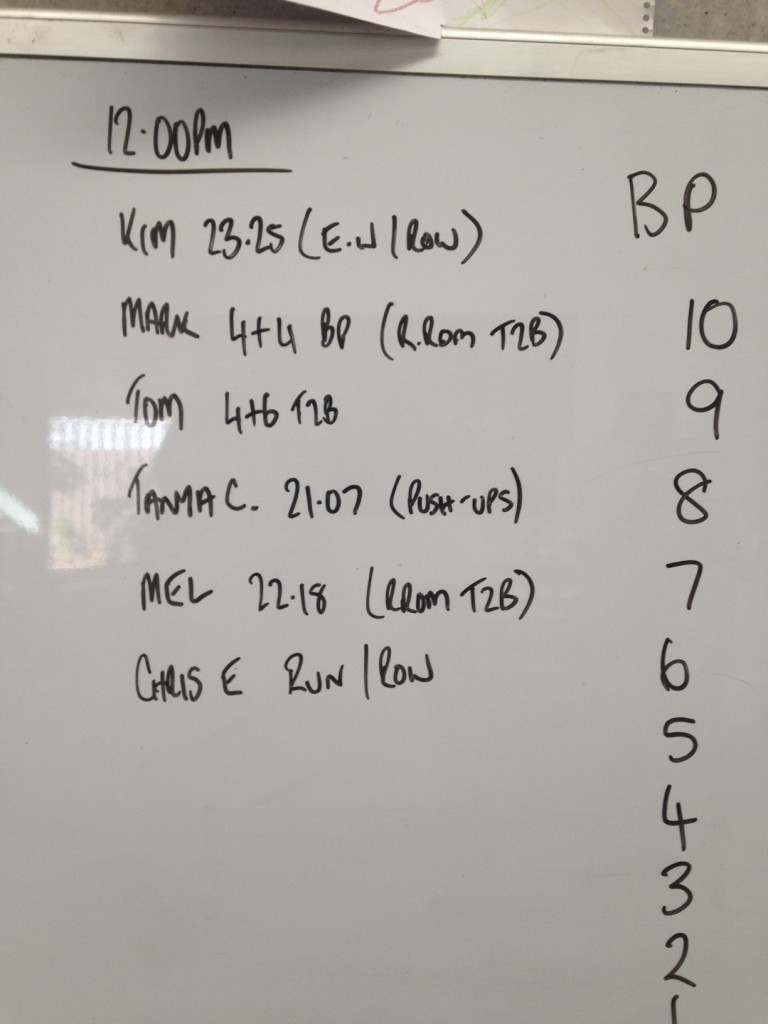 12.00PM
KIM 23.25 (E.W / ROW)
MARK 4+4 BP (R.ROM T2B)
TOM 4+6 T2B
TANYA C. 21.07 (PUSH-UPS)
MEL 22.18 (RROM T2B)
CHRIS E RUN / ROW
BP
10
9
8
7
6
5
4
3
2
1